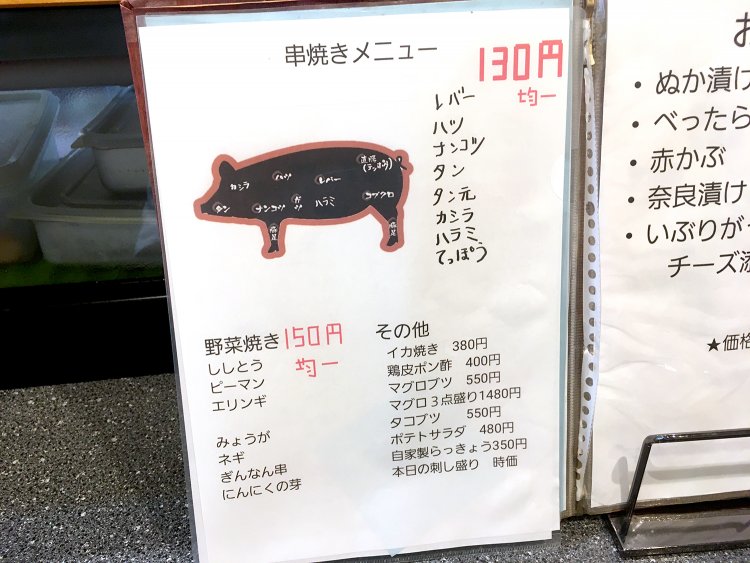 串焼きメニュー
130円
均一
レバー
ハツ
ナンコツ
タン
タン元
カシラ
ハラミ
てっぽう
カシラ
ハツ
レバー
直腸
(てっぽう)
タン
ナンコツ
ガツ
ハラミ
コブクロ
豚足
豚足
野菜焼き 150円
均一
ししとう
ピーマン
エリンギ
みょうが
ネギ
ぎんなん串
にんにくの芽
その他
イカ焼き 380円
鶏皮ポン酢 400円
マグロブツ 550円
マグロ3点盛り1480円
タコブツ 550円
ポテトサラダ 480円
自家製らっきょう350円
本日の刺し盛り 時価
お
・ぬか漬け
・べったら
・赤かぶ
・奈良漬け
・いぶりが
チーズ添
★価格